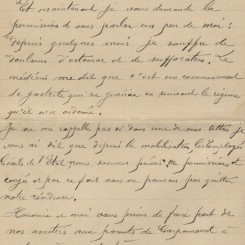 Et maintenant je vous demande la
permission de vous parler un peu de moi:
depuis quelques mois je souffre de
douleurs d'estomac et de suffocation, le
médecin me dit que c'est un commencement
de gastrite qui se guérira en suivant le régime
qu'il m'a ordonné.
Je ne me rappelle pas si dans une de mes lettres je
vous ai dit que depuis la mobilisation, les employés
de l'Etat nous sommes privés de permission et
congé et par ce fait nous ne pouvons pas quitter
notre résidence.
et moi vous prions de faire part de
nos amitiés aux parents de